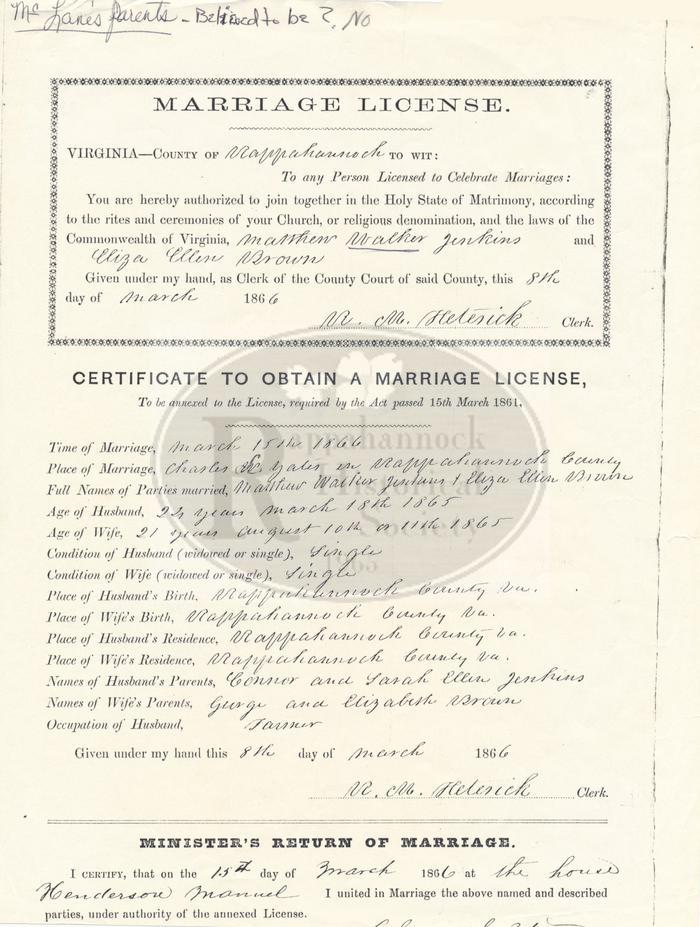 Mc Lane's parents - Believed to be ?, No
MARRIAGE LICENSE.
VIRGINIA—COUNTY OF Rappahannock TO WIT:
To any Person Licensed to Celebrate Marriages:
You are hereby authorized to join together in the Holy State of Matrimony, according
to the rites and ceremonies of your Church, or religious denomination, and the laws of the
Commonwealth of Virginia, Matthew Walker Jenkins and
Eliza Ellen Brown
Given under my hand, as Clerk of the County Court of said County, this 8th
day of March 1866
R. M. Heterick Clerk.
CERTIFICATE TO OBTAIN A MARRIAGE LICENSE,
To be annexed to the License, required by the Act passed 15th March 1861.
Time of Marriage, March 15th 1866
Place of Marriage, Charles Yates in Rappahannock County
Full Names of Parties married, Matthew Walker Jenkins & Eliza Ellen Brown
Age of Husband, 24 years March 18th 1865
Age of Wife, 21 years August 10th or 11th 1865
Condition of Husband (widowed or single), Single
Condition of Wife (widowed or single), Single
Place of Husband's Birth, Rappahannock County Va.
Place of Wife's Birth, Rappahannock County Va.
Place of Husband's Residence, Rappahannock County Va.
Place of Wife's Residence, Rappahannock County Va.
Names of Husband's Parents, Connor and Sarah Ellen Jenkins
Names of Wife's Parents, George and Elizabeth Brown
Occupation of Husband, Farmer
Given under my hand this 8th day of March 1866
R. M. Heterick Clerk.
MINISTER'S RETURN OF MARRIAGE.
I CERTIFY, that on the 15th day of March 1866 at the house
Henderson Manuel I united in Marriage the above named and described
parties, under authority of the annexed License.
Rappahannock
Historical
Society